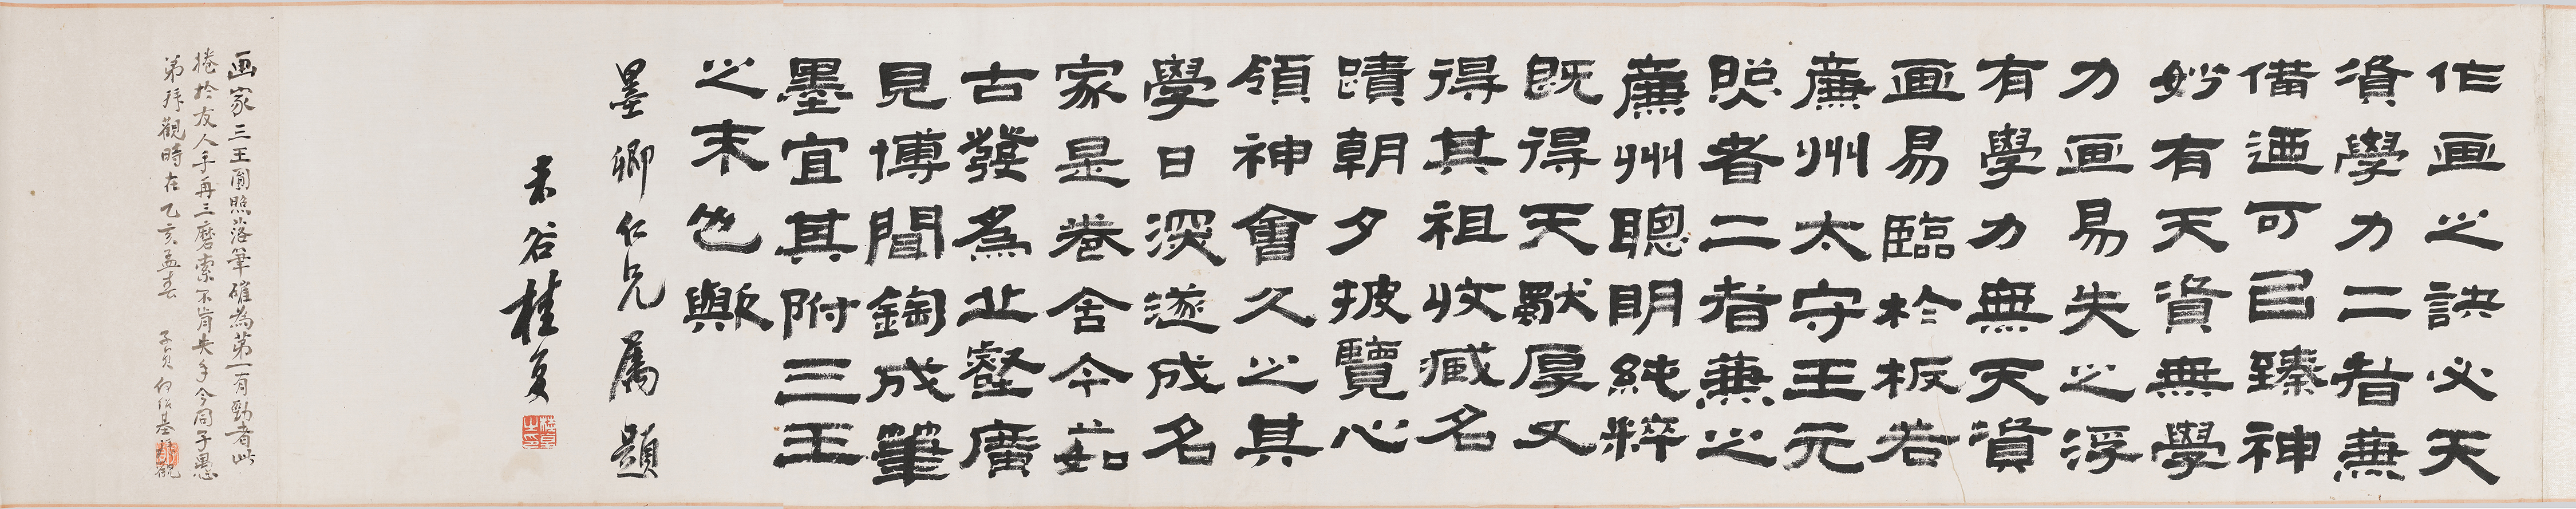 作画之訣必天
資學力二者兼
備迺可臼臻神
妙有天資無學
力画易失之浮
有學力無天資
画易臨於板若
廉州太守王元
照者二者兼之
廉州聰明純粹
既得天獸厚又
得其祖收臧名
蹟朝夕披覽心
領神會久之其
學日深遂成名
家是卷舍今茹
古發為北壑廣
見博聞鎔成筆
墨宜其附三王
之末也歟
墨卿仁兄屬題
未谷桂馥
画家三王圓照落筆確為第一有勁者此
捲於友人手再三磨索不肯失手今同子愚
弟拜觀時在乙亥孟春 子貞何紹基